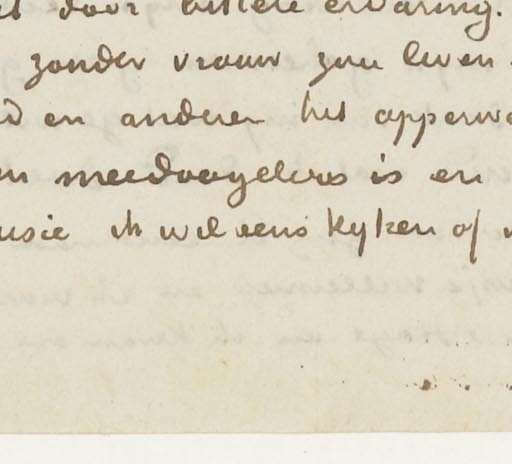 door bittere ervaring.
zonder vrouw zou leven
en anderen het opperwe
meedoogeloos is en
usie ik wil eens kyken of